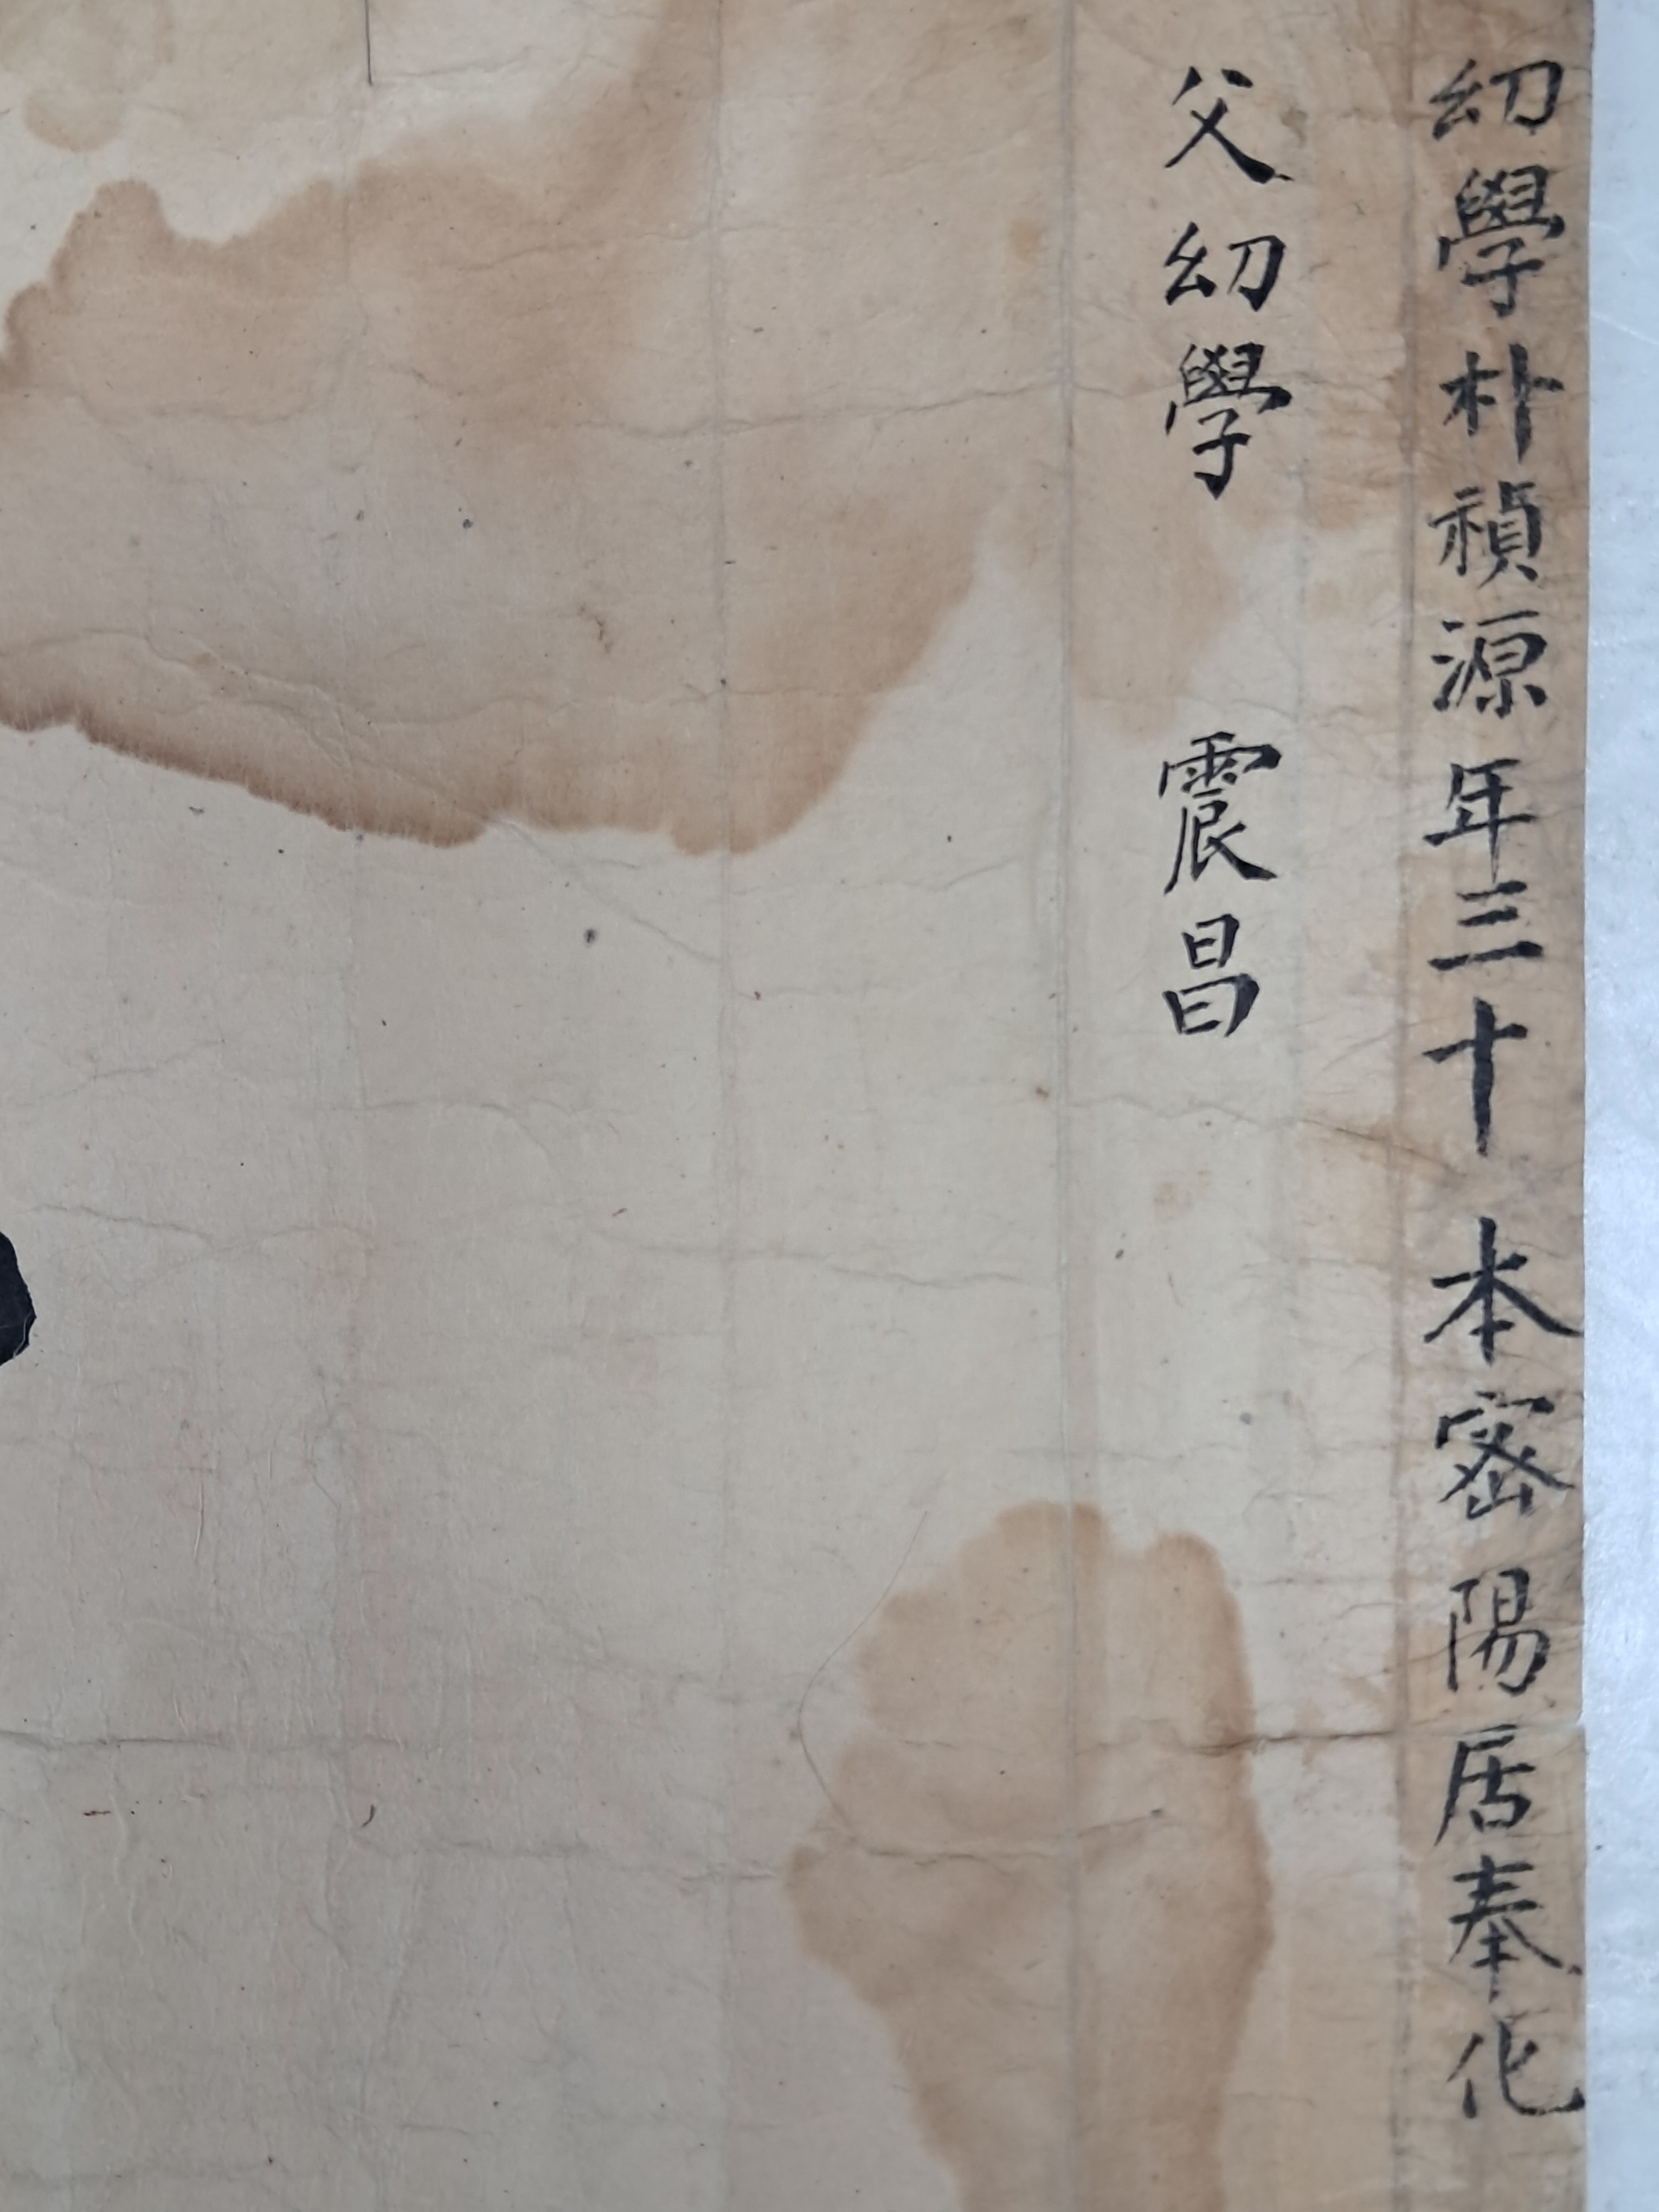 幼學朴禎源年三十 本密陽居奉化
父幼學 震昌